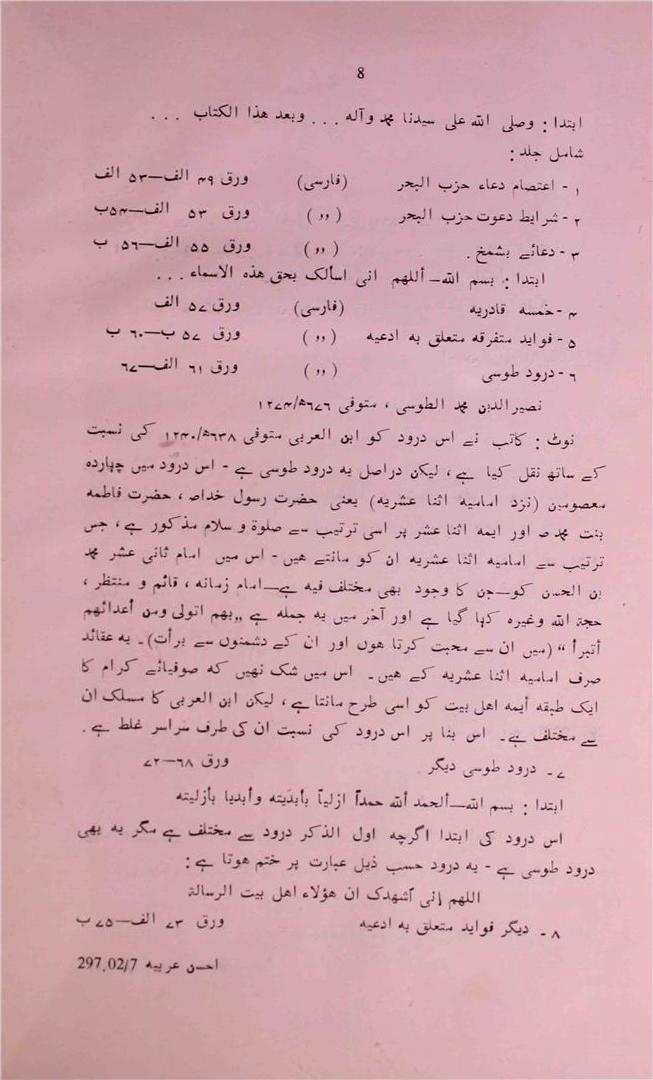 8
ابتدا : وصلی الله علی سیدنا محمد وآله . . . وبعد هذا الکتاب . . .
شامل جلد :
۱ - اعتصام دعاء حزب البحر (فارسی) ورق ۴۹ الف—۵۳ الف
۲ - شرایط دعوت حزب البحر ( ,, ) ورق ۵۳ الف—۵۴ب
۳ - دعائے بشمخ . ( ,, ) ورق ۵۵ الف—۵۶ ب
ابتدا : بسم الله—أللهم انی اسألک بحق هذه الاسماء . . .
۴ - خمسه قادریه (فارسی) ورق ۵۷ الف
۵ - فواید متفرقه متعلق به ادعیه ( ,, ) ورق ۵۷ ب—۶۰ ب
۶ - درود طوسی ( ,, ) ورق ۶۱ الف—۶۷
نصیر الدین محمد الطوسی ، متوفی ۶۷۶ھ/۱۲۷۴ء
نوٹ : کاتب نے اس درود کو ابن العربی متوفی ۶۳۸ھ/۱۲۴۰ء کی نسبت
کے ساتھ نقل کیا ہے ، لیکن دراصل یه درود طوسی ہے - اس درود میں چہارده
معصومین (نزد امامیه اثنا عشریه) یعنی حضرت رسول خداص ، حضرت فاطمه
بنت محمدص اور ایمه اثنا عشر پر اسی ترتیب سے صلوة و سلام مذکور ہے ، جس
ترتیب سے امامیه اثنا عشریه ان کو مانتے ھیں - اس میں امام ثانی عشر محمد
بن الحسن کو—جن کا وجود بھی مختلف فیه ہے—امام زمانه ، قائم و منتظر ،
حجة الله وغیره کہا گیا ہے اور آخر میں یه جمله ہے ,,بهم اتولی ومن أعدائهم
أتبرأ “ (میں ان سے محبت کرتا ھوں اور ان کے دشمنوں سے برأت)۔ یه عقائد
صرف امامیه اثنا عشریه کے ھیں۔ اس میں شک نھیں که صوفیائے کرام کا
ایک طبقه أیمه اهل بیت کو اسی طرح مانتا ہے ، لیکن ابن العربی کا مسلک ان
سے مختلف ہے۔ اس بنا پر اس درود کی نسبت ان کی طرف سراسر غلط ہے .
۷ ۔ درود طوسی دیگر . ورق ۶۸—۷۲
ابتدا : بسم الله—ألحمد ألله حمداً ازلیاً بأبدیته وأبدیا بأزلیته
اس درود کی ابتدا اگرچه اول الذکر درود سے مختلف ہے مگر یه بھی
درود طوسی ہے - یه درود حسب ذیل عبارت پر ختم ھوتا ہے :
اللهم إنی آشهدک ان هؤلاء اهل بیت الرسالة
۸ ۔ دیگر فواید متعلق به ادعیه ورق ۷۳ الف—۷۵ ب
احسن عربیه 297,02/7